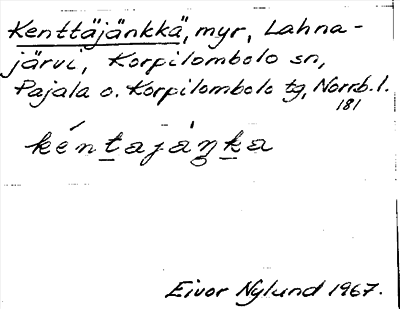 Kenttäjänkkä, myr, Lahna-
järvi, Korpilombolo sn,
Pajala o. Korpilombolo tg, Norrb. l.
181
kéntajáŋka
Eivor Nylund 1967.